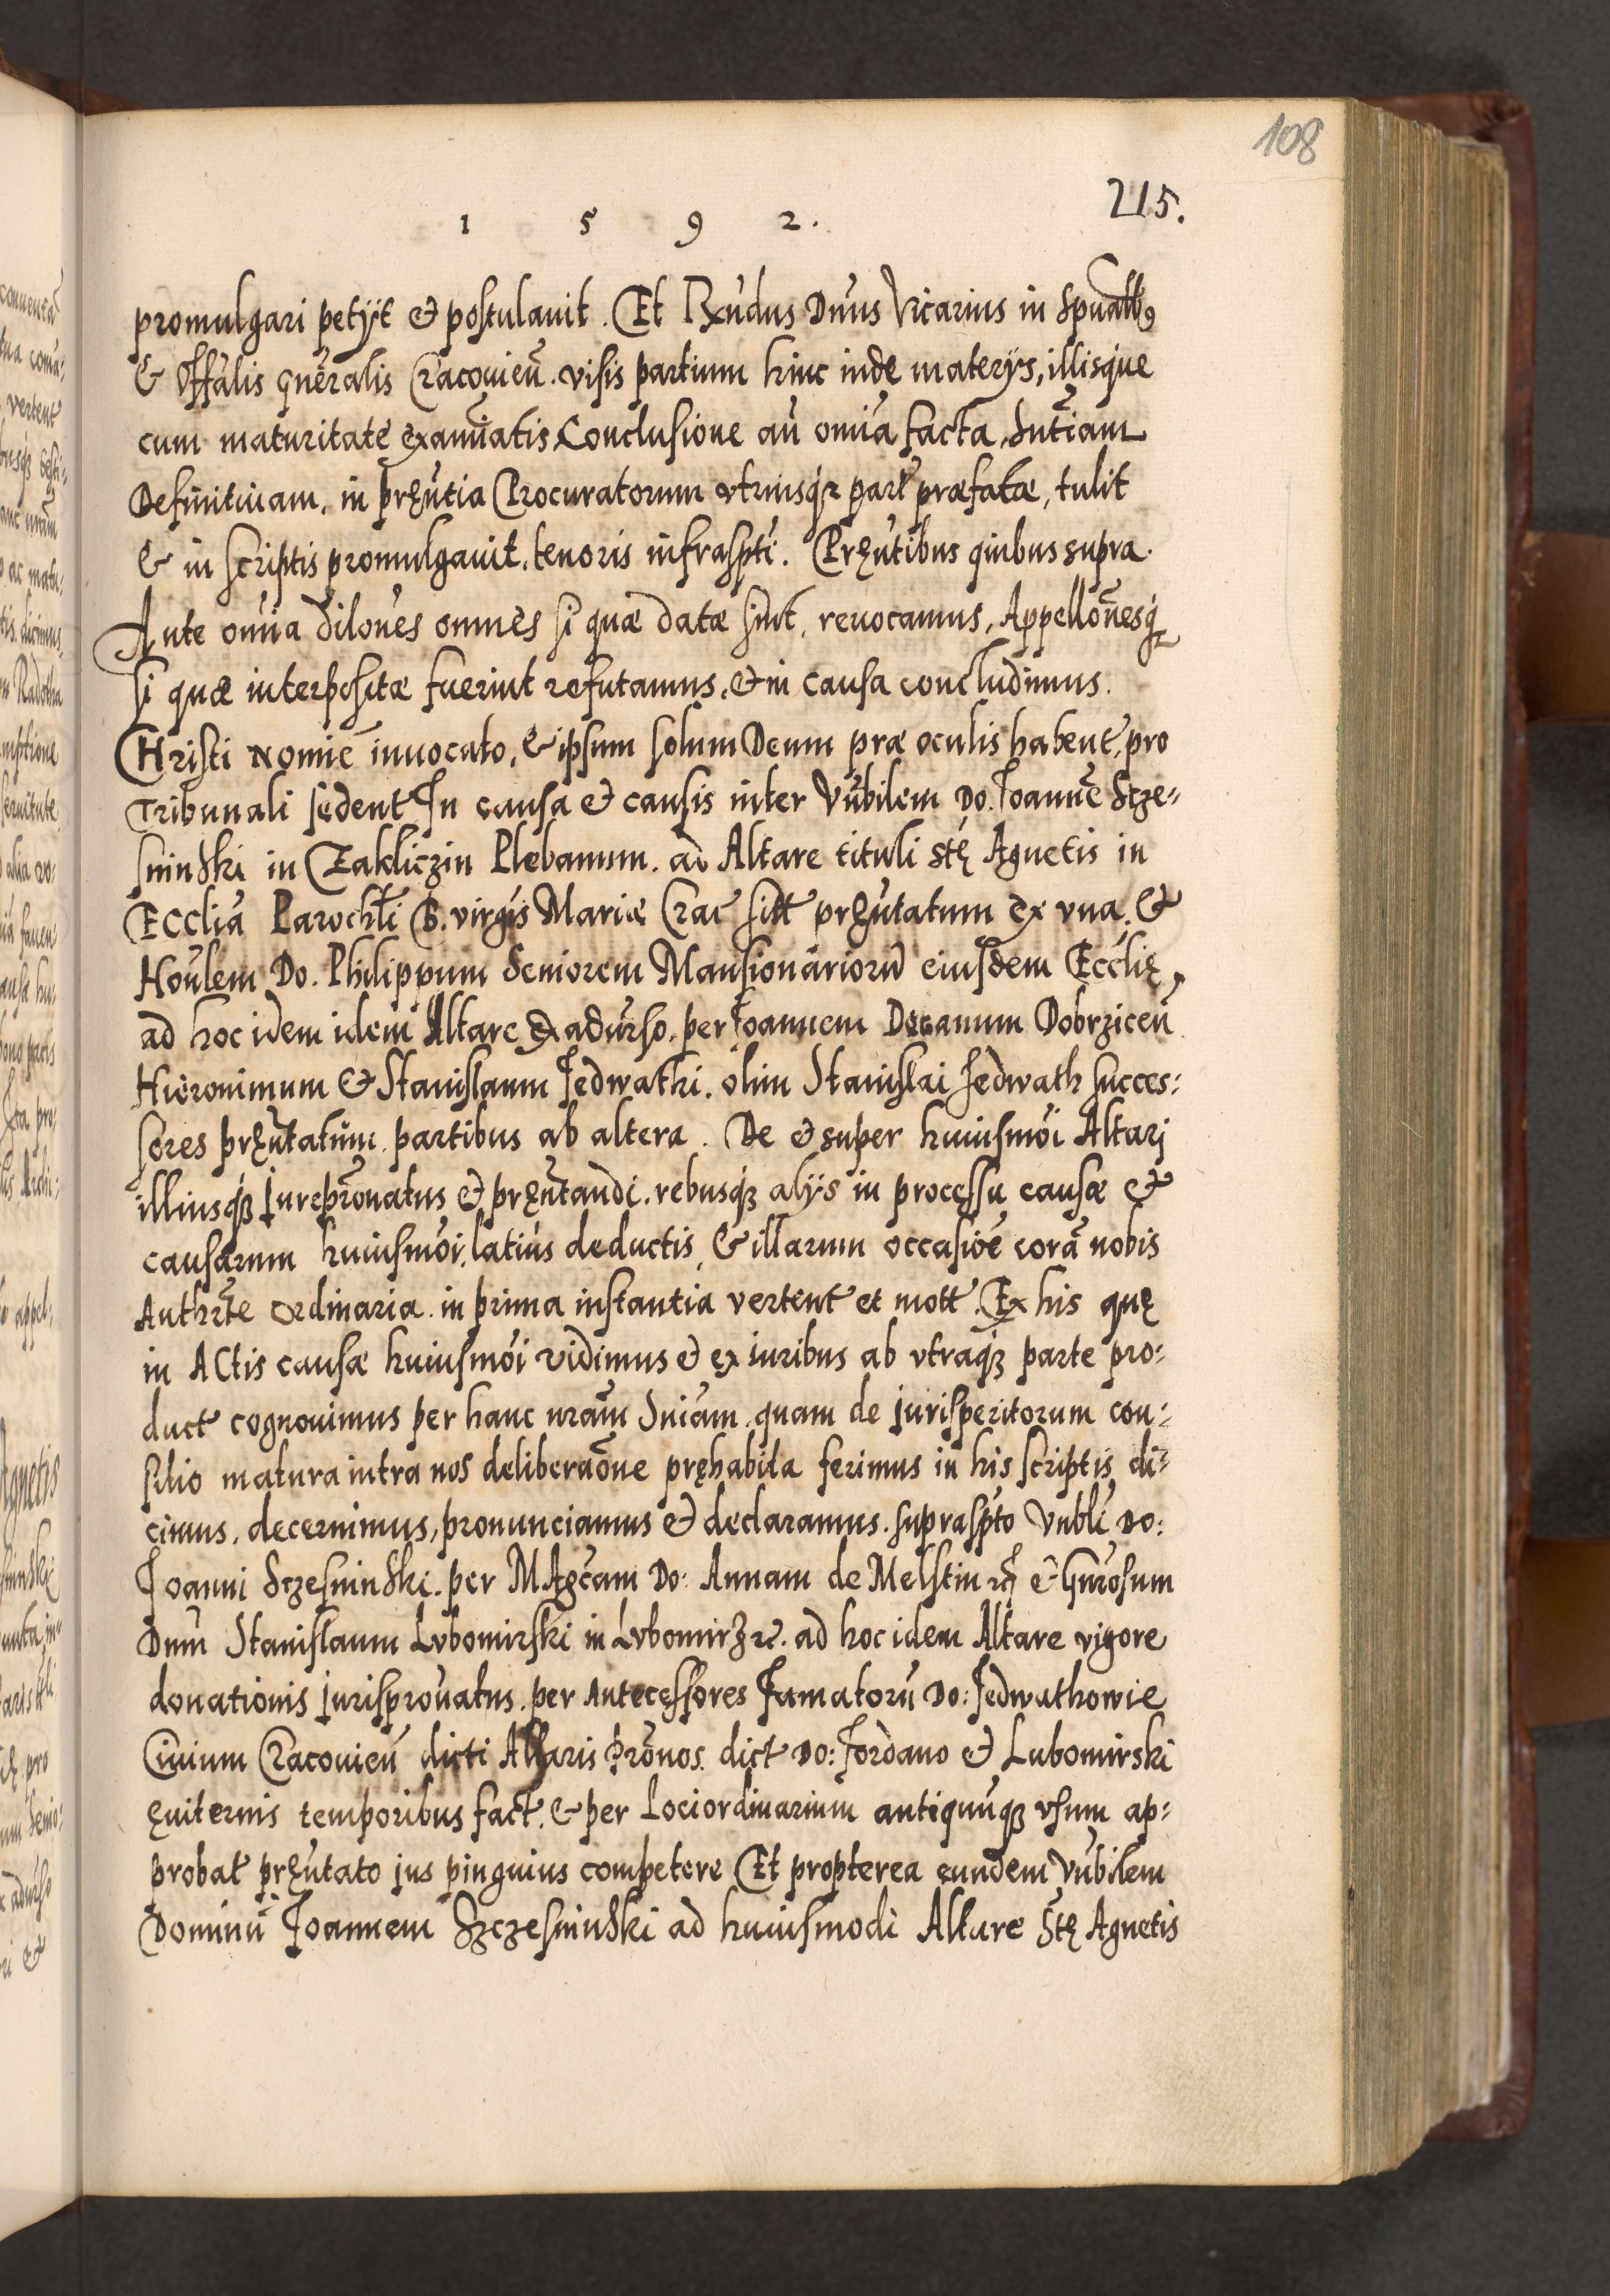 108
215.
1 5 9 2.
promulgari petijt et postulauit. Et Rxūdus Dnus Vicarius in Spualibus
& Offalis gneralis Cracouieñ. visis partium hinc inde materijs, illisque
cum maturitate examiatis Conclusione añ omia facta, Sntiam
Definitiuam, in pręntia Procuratorum vtriusq̃ part præfatæ, tulit
& in scriptis promulgauit, tenoris infraspti. Pręntibus quibus supra.
Ante omia dilones omnes si quæ datæ sint, reuocamus, Appellonesq̃
si quæ interpositæ fuerint refutamus, & in causa concludimus.
CHristi Nomiē inuocato, & ipsum solum Deum præ oculis habent, pro
Tribunali sedent In causa et causis inter Vñbilem Do. Joannē Scze-
sninski in Zakliczin Plebanum. ad Altare tituli stę Agnetis in
Ecclia Parochli B. virgis Mariæ Crac sitt pręntatum ex vna. &
Honlem Do. Philippum Seniorem Mansionariorũ eiusdem Ecclię,
ad hoc idem idem Altare Ex adũrso. per Joannem Decanum Dobrziceñ
Hieronimum & Stanislaum Jedwathi. olim Stanislai Jedwath succes:
sores pręntatum. partibus ab altera. De et super huiusmoi Altari
illiusq̃ Jurepronatus et pręntandi. rebusq̃ alijs in processu causæ et
causarum huiusmoi, latius deductis, & illarum occasioē corā nobis
Authrte ordinaria. in prima instantia vertent et mott. Ex his quę
in Actis causæ huiusmoi vidimus et ex iuribus ab vtraq̃ parte pro:
duct cognouimus per hanc nram Sniam. quam de jurisperitorum con:
silio matura intra nos deliberaone pręhabita ferimus in his scriptis di:
cimus, decernimus, pronunciamus et declaramus. supraspto Vnbli Do:
Joanni Sczesninski. per MAgcam Do: Annam de Melstin & Gnrosum
Dnm Stanislaum Lvbomirski in Lvbomirz. ad hoc idem Altare vigore
donationis jurisprouatus. per Antecessores Famatorũ Do: Jedwathowie
Ciuium Cracouieñ dicti Altaris pronos. dict Do: Jordano et Lubomirski
ęuiternis temporibus fact. & per Lociordinarium antiquũq̃ vsum ap:
probat pręntato jus pinguius competere Et propterea eundem Vñbilem
Dominũ Joannem Szczesninski ad huiusmodi Altare Stę Agnetis